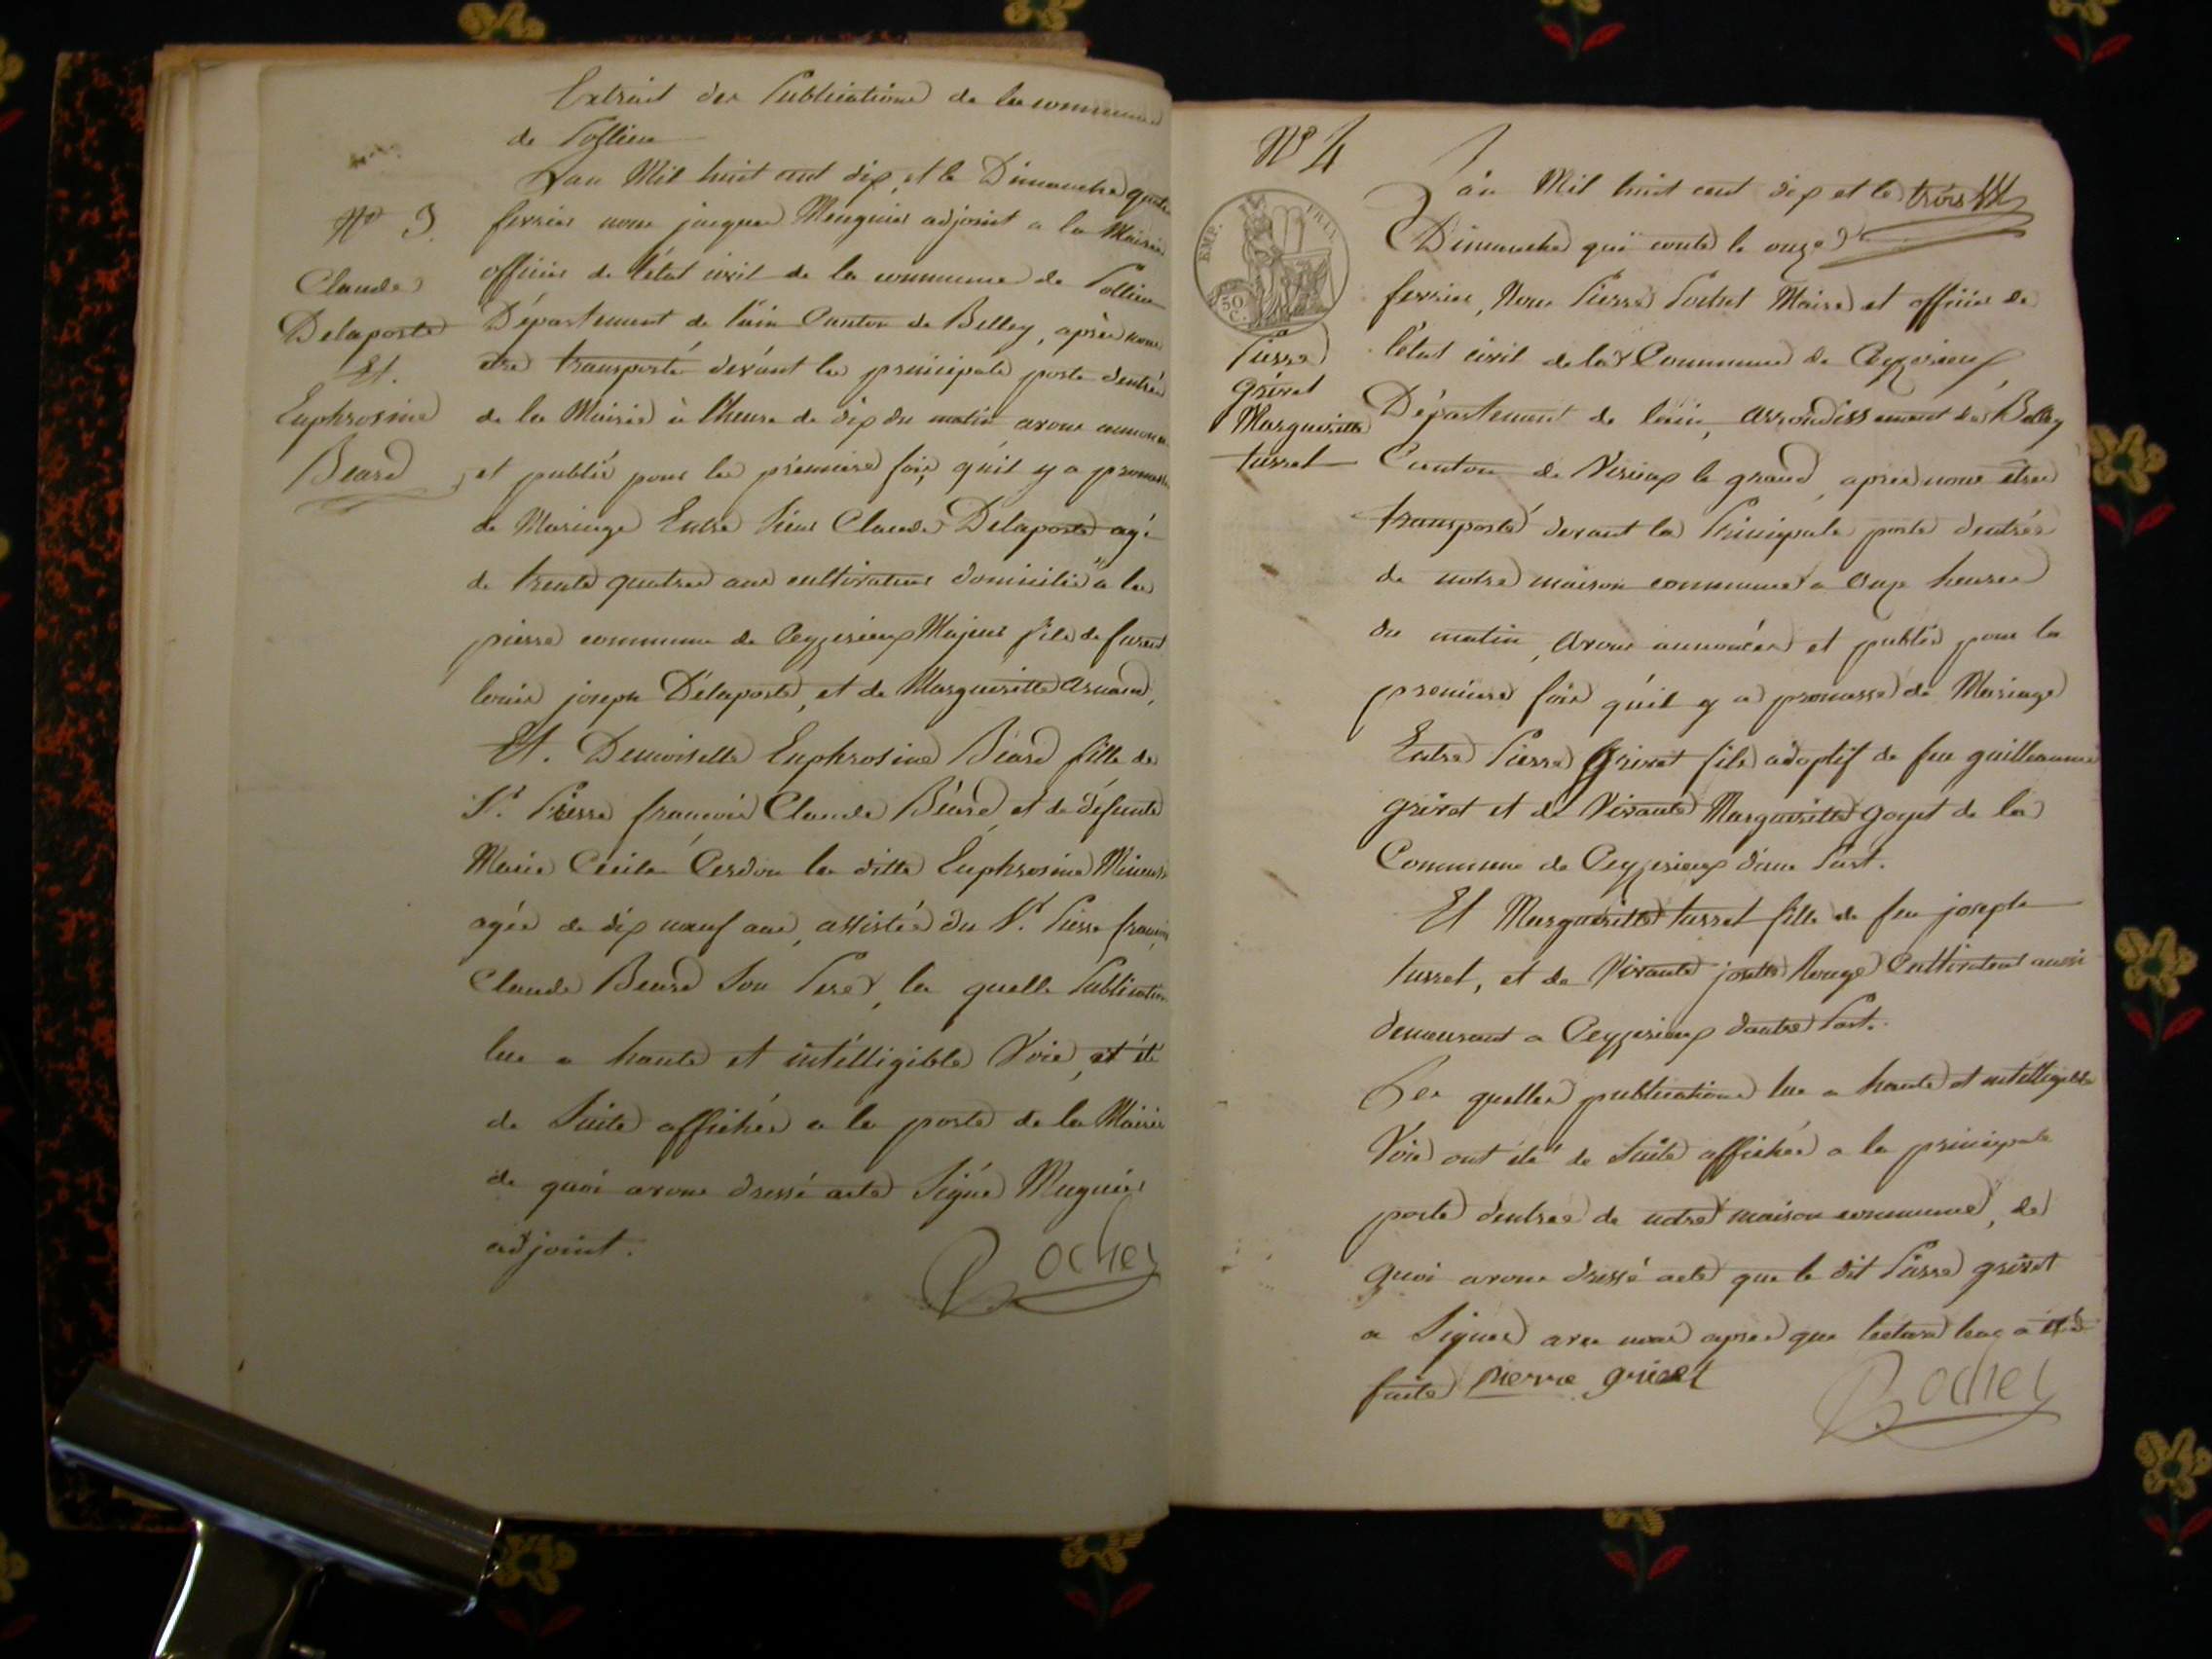 Extrait des Publications de la commune
de Pollieu
L'an Mil huit cent dix, et le Dimanche quatre
N° 3.
Claude
Delaporte
Et.
Euphrosine
Beard
fevrier nous jacques Meugnier adjoint a la Mairie
officier de l'état civil de la commune de Pollieu
Département de l'ain Canton de Belley, après nous
etre transporté devant la principale porte dentrée
de la Mairie à l'heure de dix du matin avons annoncé
et publié pour la premiere fois, qu'il y a promesse
de Mariage Entre Sieur Claude Delaporte agé
de trente quatre ans cultivateur domicilié à la
pierre commune de Ceyzerieux Majeur fils de
louis joseph Délaporte, et de Margueritte arnaud,
Et. Demoiselle Euphrosine Béard fille de
Sr. Pierre françois Claude Béard et de défunte
Marie Cécile Cerdon la ditte Euphrosine Mineure
agée de dix neuf ans, assistée du Sr. Pierre françois
Claude Beard Son Pere, la quelle Publication
lue a haute et intélligible Voix, et été
de Suite affichée a la porte de la Mairie
de quoi avons dressé acte Signé Meugnier
adjoint.
Bochet
N° 4
EMP. FRAN.
50 C.
Pierre
grivet
Margueritte
turrel
L'an Mil huit cent dix et le trois
Dimanche qui conte le onze
fevrier, Nous Pierre Pochet Maire et officier de
l'état civil de la Commune de Ceyzerieux
Département de l'ain, arrondissement de Belley
Canton de Virieux le grand, apres nous etre
transporté devant la Principale porte dentrée
de notre maison commune a onze heures
du matin, avons annoncés et publiés pour la
premiere fois qu'il y a promasse de Mariage
Entre Pierre Grivet fils adoptif de feu guilleaume
grivet et de Vivante Margueritte goyet de la
Commune de Ceyzerieux d'une Part.
Et Marguéritte turrel fille de feu joseph
turrel, et de Vivante Rouge Cultivateur aussi
demeurant a Ceyzerieux dautre Part.
Les quelles publications lue a haute et intelligible
Voix ont été de Suite affichée a la principale
porte dentrée de notre maison commune, de
quoi avons dressé acte que le dit Pierre grivet
a Signer avec nous apres que lecture leur a été
faite pierre grivet
Bochet